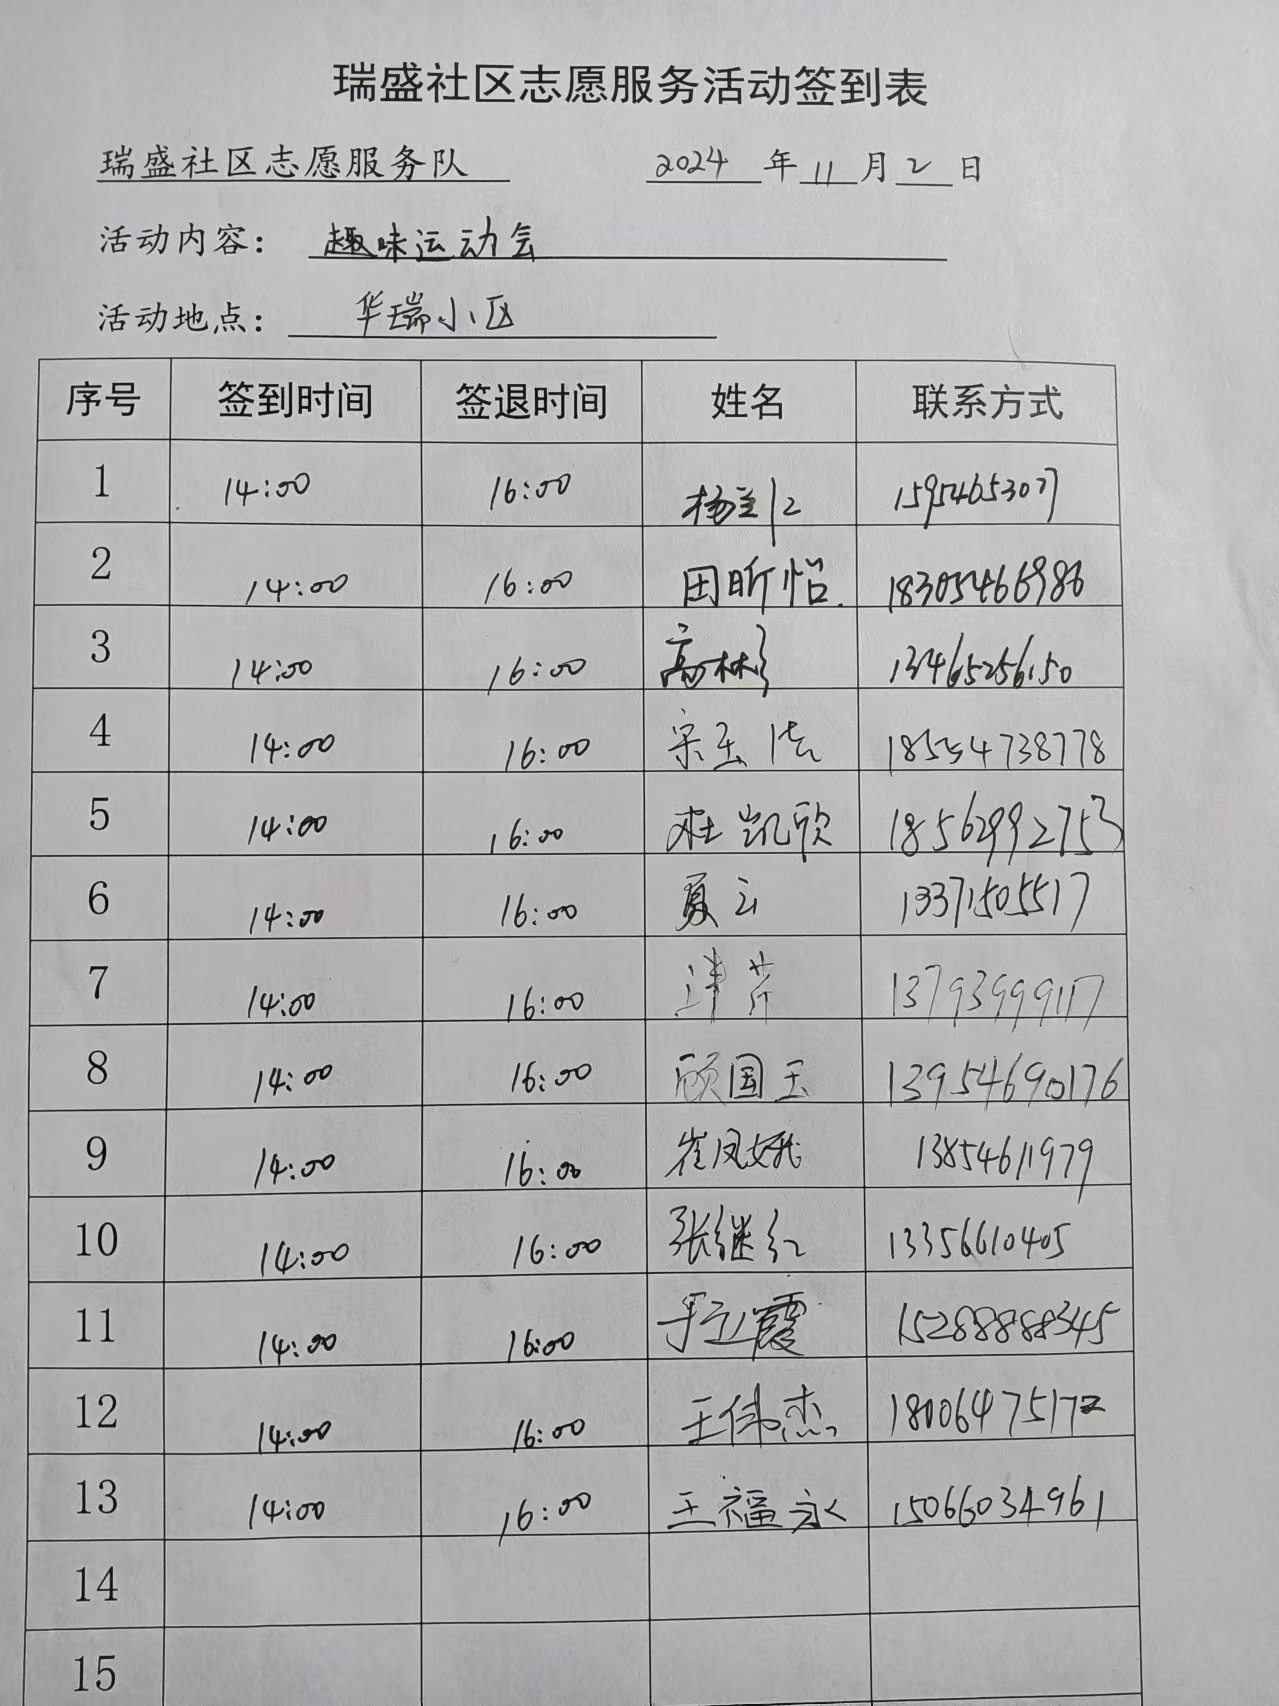 瑞盛社区志愿服务活动签到表
瑞盛社区志愿服务队 2024 年 11 月 2 日
活动内容： 趣味运动会
活动地点： 华瑞小区
序号 签到时间 签退时间 姓名 联系方式
1 14:00 16:00 15954653077
2 14:00 16:00 田昕怡 18305466986
3 14:00 16:00 高彬 13465256150
4 14:00 16:00 18554738778
5 14:00 16:00 杜凯欣 18562992753
6 14:00 16:00 夏云 13371505517
7 14:00 16:00 13793999117
8 14:00 16:00 顾国玉 13954690176
9 14:00 16:00 崔凤娥 13854611979
10 14:00 16:00 张继红 13356610405
11 14:00 16:00 15288888345
12 14:00 16:00 王伟杰 18006475172
13 14:00 16:00 王福永 15066034961
14
15